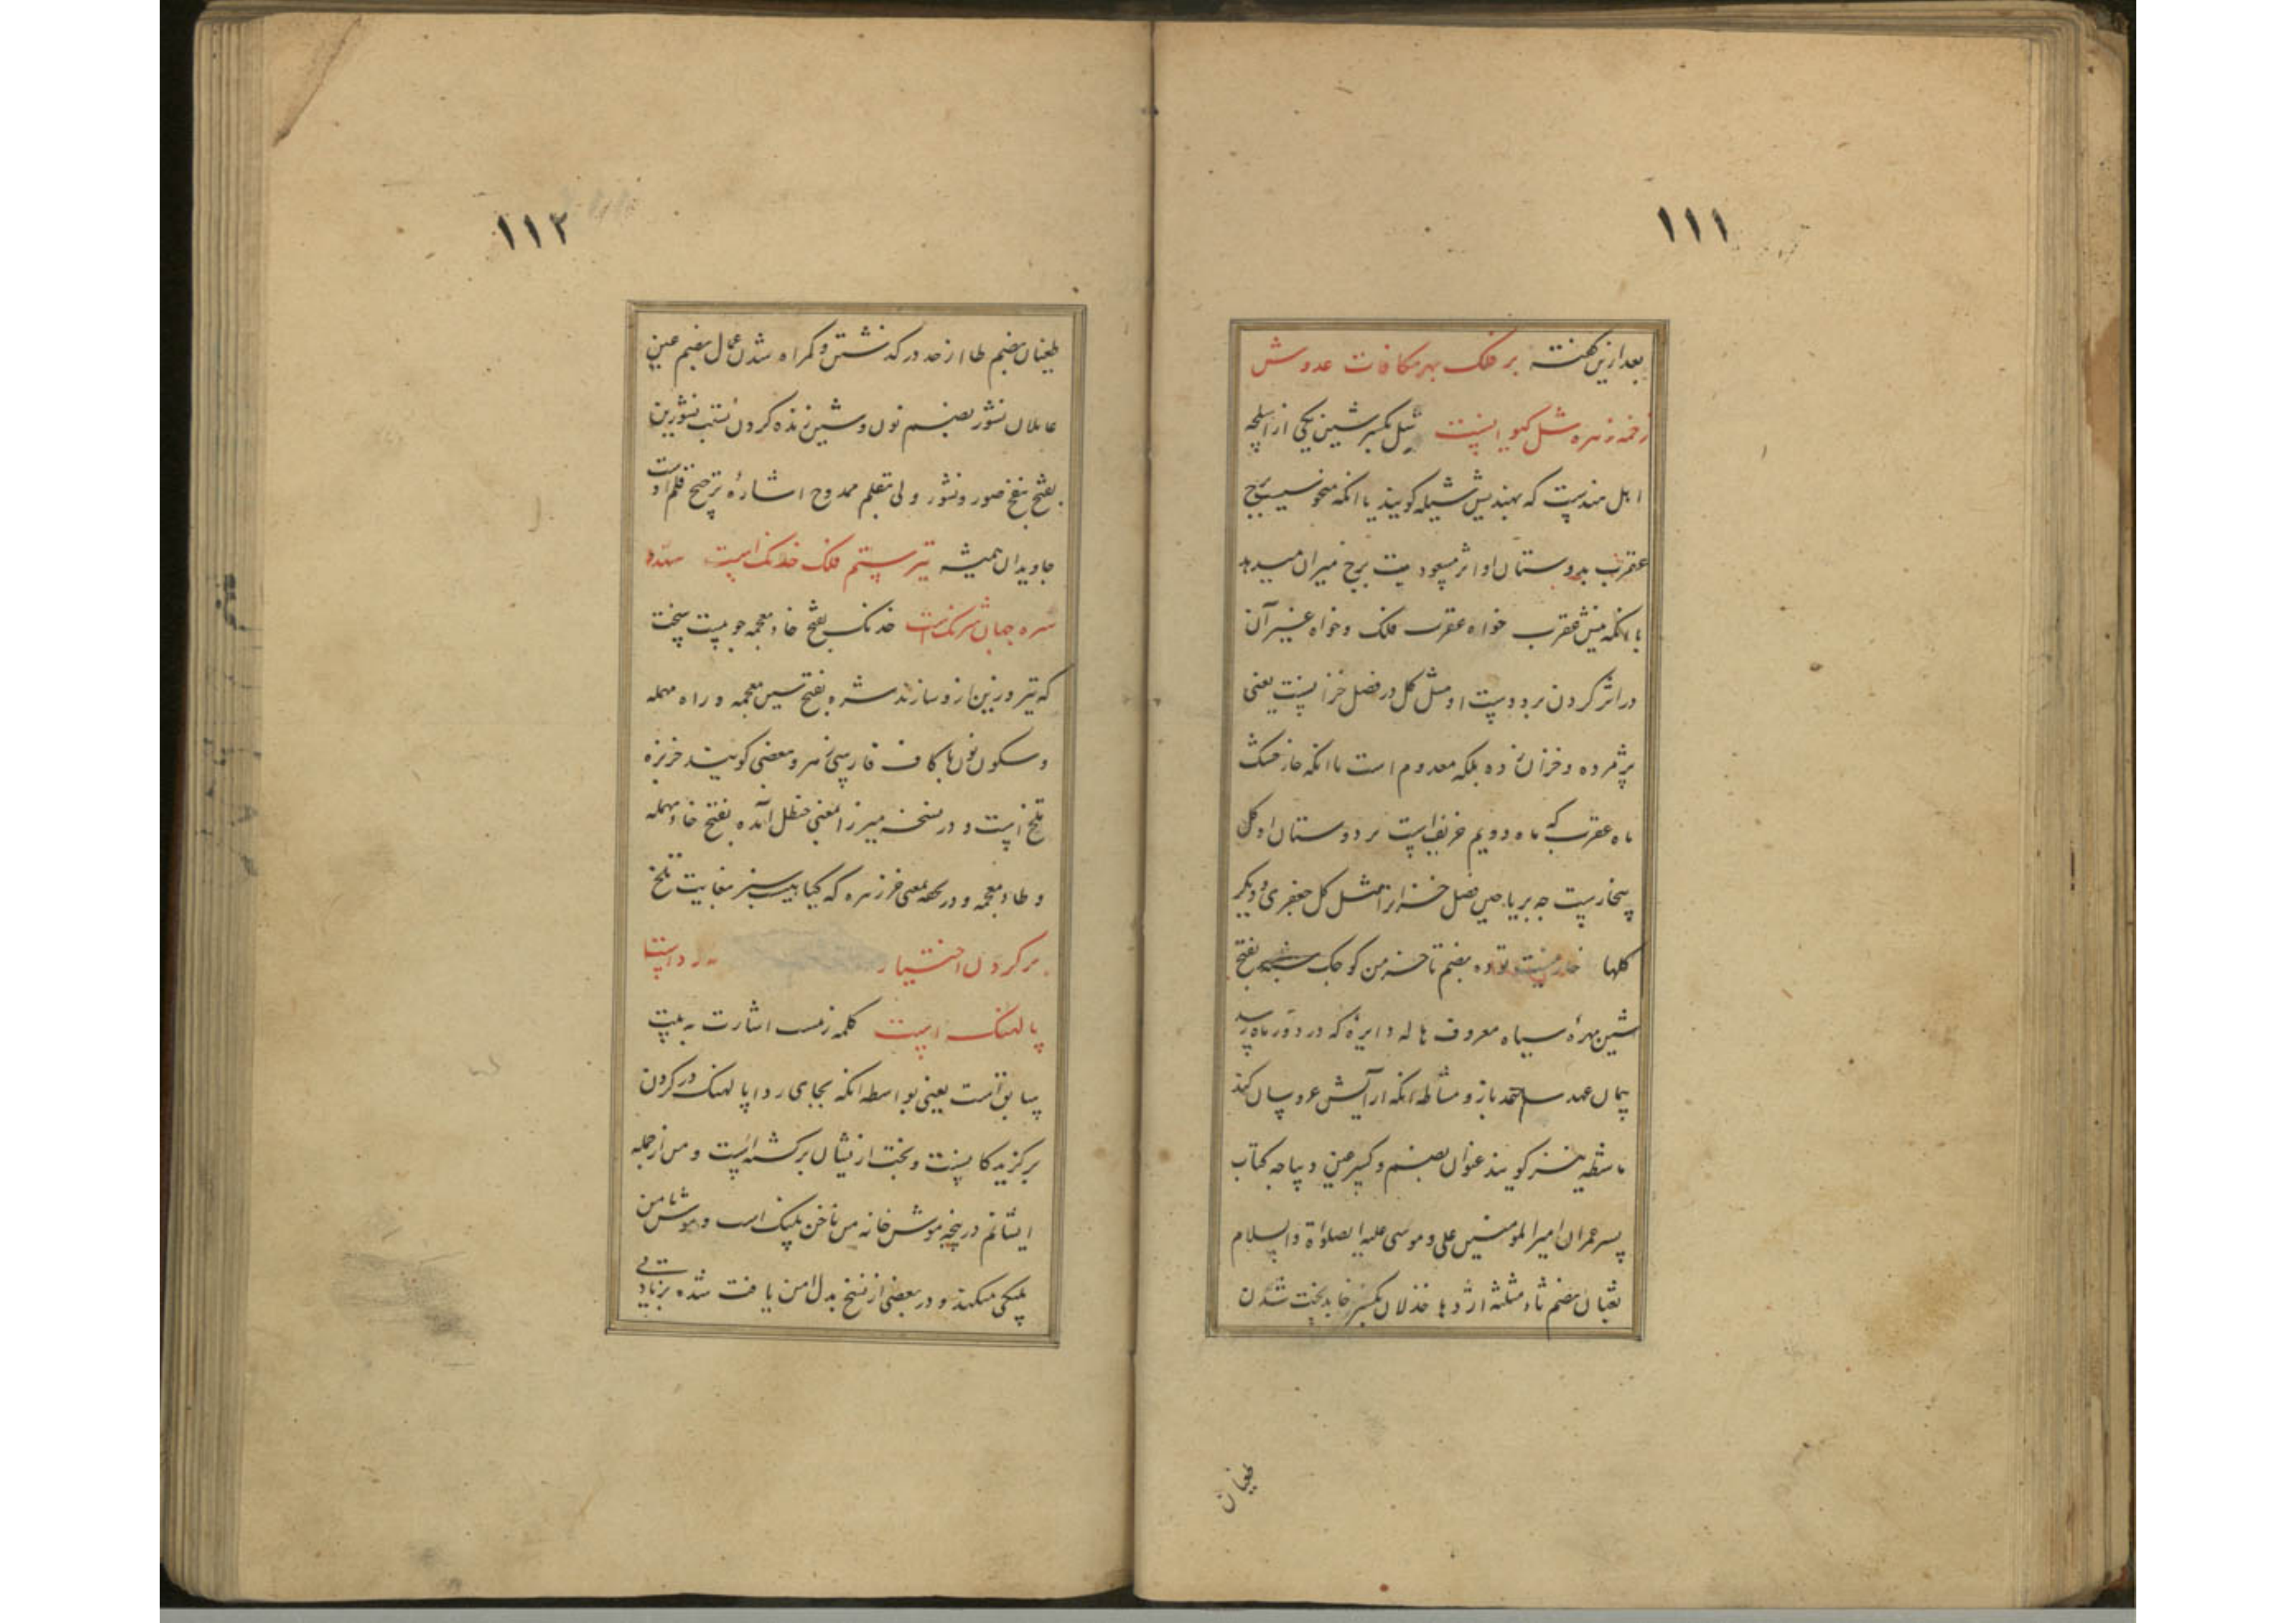 ۱۱۱
بعد ازین گفته بر فلک بهر مکافات عدوش
زخمه زهره شل کیوانست شل بکسر شین یکی از اسلحه
اهل هندست که بهندیش شیله گویند یا انکه منحوس برج
عقرب بدوستان او اثر مسعودیت برج میزان میدهد
یا انکه نیش عقرب خواه عقرب فلک و خواه غیر آن
در اثر کردن بر دوست او مثل گل در فصل خزانست یعنی
پژمرده و خزان زده بلکه معدوم است یا انکه خار خشک
ماه عقرب که ماه دویم خریف است بر دوستان او گل
بیخارست چه بریاحین فصل خزان مثل گل جعفری و دیگر
گلها توده بضم تا خرمن کوچک شبه بفتح
شین مهرۀ سیاه معروف هاله دایرۀ که در دور ماه رسد
پیمان عهد باز و مشاطه انکه آرایش عروسان کند
ماشطه نیز گویند عنوان بضم و کسر عین دیباجه کتاب
پسر عمران امیر المومنین علی و موسی علیه الصلواة والسلام
ثعبان بضم ثاء مثلثه اژدها خذلان بکسر خا بدبخت شدن
طغیان
۱۱۲
طغیان بضم طا از حد در گذشتن و گمراه شدن عمال بضم عین
عاملان نشور بضم نون و شین زنده کردن
بفتح نفخ صور و نشور ولی بقلم ممدوح اشارۀ ترجیح قلم اوست
جاویدان همیشه تیر ستم فلک خدنک است
شره جهان شرنک است خدنک بفتح خاء معجمه چوبیست سخت
که تیر و زین ازو سازند شره بفتح شین معجمه و راء مهمله
و سکون نون با کاف فارسی زهر و بعضی گویند خربزه
تلخ است و در نسخه میرزا بمعنی حنظل آمده بفتح حاء مهمله
و طاء معجمه و در تحفه بمعنی خرزهره که گیاهیست سبز بغایت تلخ
بر گردن اختیار رد است
پالهنک است کلمه زنسب اشارت به بیت
سابق است یعنی بواسطه انکه بجای ردا پالهنک در گردن
برگزیدگانست و بخت ازیشان برگشته است و من از جمله
ایشانم در پنجه موش خانه من ناخن پلنک است و موش من
پلنکی میکند و در بعضی از نسخ بدل من یافت شده بزیادتی